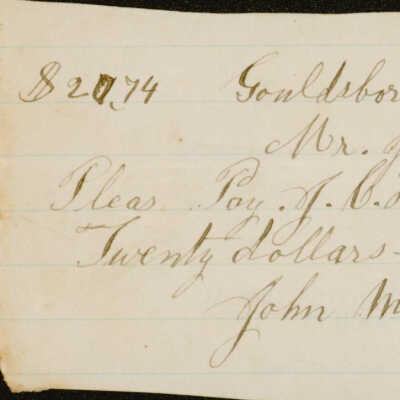 $20.74 Gouldsbor
Mr. J
Pleas Pay. J. C.
Twenty dollars-
John M